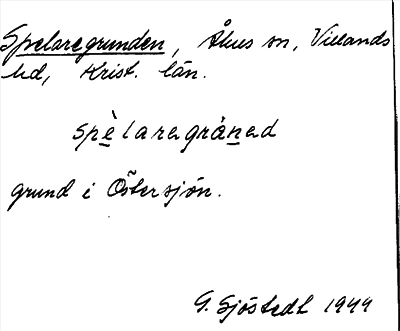 Spelaregrunden, Åhus sn, Villands
hd, Krist. län.
spèlaregrån̲ed
grund i Östersjön.
G. Sjöstedt 1944